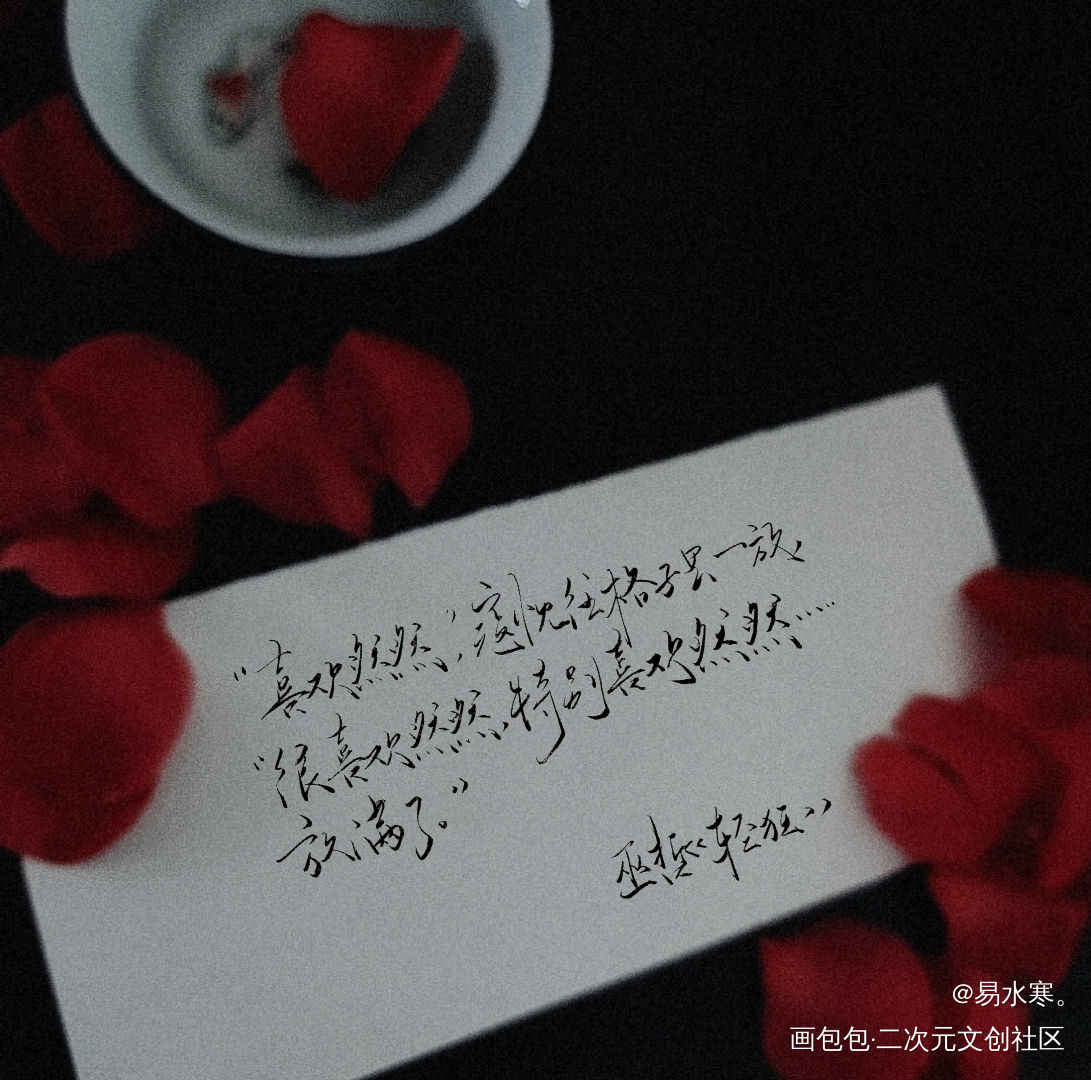 “喜欢然然,”寇忱往格子里一放,
“很喜欢然然,特别喜欢然然……
放满了。”
巫哲《轻狂》
@易水寒。
画包包·二次元文创社区